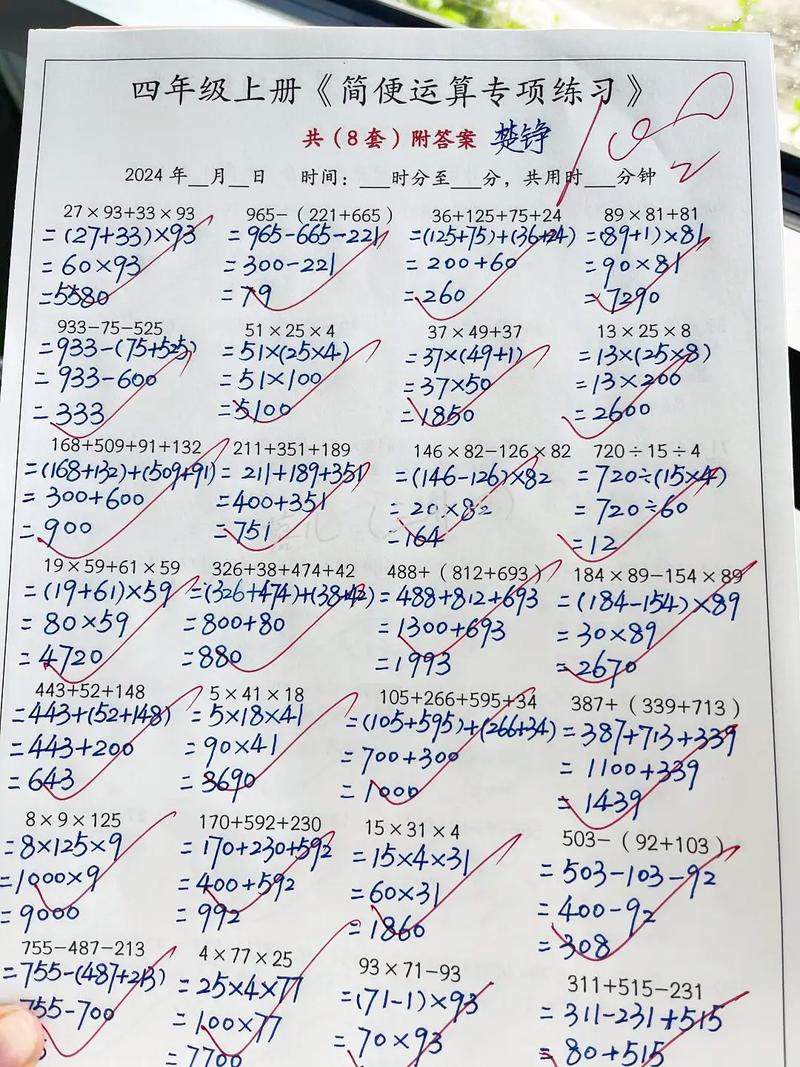 四年级上册《简便运算专项练习》
共（8套）附答案 楚铮
2024年__月__日 时间：___时分至___分，共用时___分钟
27×93+33×93 965-（221+665） 36+125+75+24 89×81+81
=(27+33)×93 =965-665-221 =(125+75)+(36+24) =(89+1)×81
=60×93 =300-221 =200+60 =90×81
=5580 =79 =260 =7290
933-75-525 51×25×4 37×49+37 13×25×8
=933-(75+525) =51×(25×4) =37×(49+1) =13×(25×8)
=933-600 =51×100 =37×50 =13×200
=333 =5100 =1850 =2600
168+509+91+132 211+351+189 146×82-126×82 720÷15÷4
=(168+132)+(509+91) =211+189+351 =(146-126)×82 =720÷(15×4)
=300+600 =400+351 =20×82 =720÷60
=900 =751 =164 =12
19×59+61×59 326+38+474+42 488+（812+693） 184×89-154×89
=(19+61)×59 =(326+474)+(38+42) =488+812+693 =(184-154)×89
=80×59 =800+80 =1300+693 =30×89
=4720 =880 =1993 =2670
443+52+148 5×41×18 105+266+595+34 387+（339+713）
=443+(52+148) =5×18×41 =(105+595)+(266+34) =387+713+339
=443+200 =90×41 =700+300 =1100+339
=643 =3690 =1000 =1439
8×9×125 170+592+230 15×31×4 503-（92+103）
=8×125×9 =170+230+592 =15×4×31 =503-103-92
=1000×9 =400+592 =60×31 =400-92
=9000 =992 =1860 =308
755-487-213 4×77×25 93×71-93 311+515-231
=755-(487+213) =25×4×77 =(71-1)×93 =311-231+515
755-700 =100×77 =70×93 =80+515
=7700